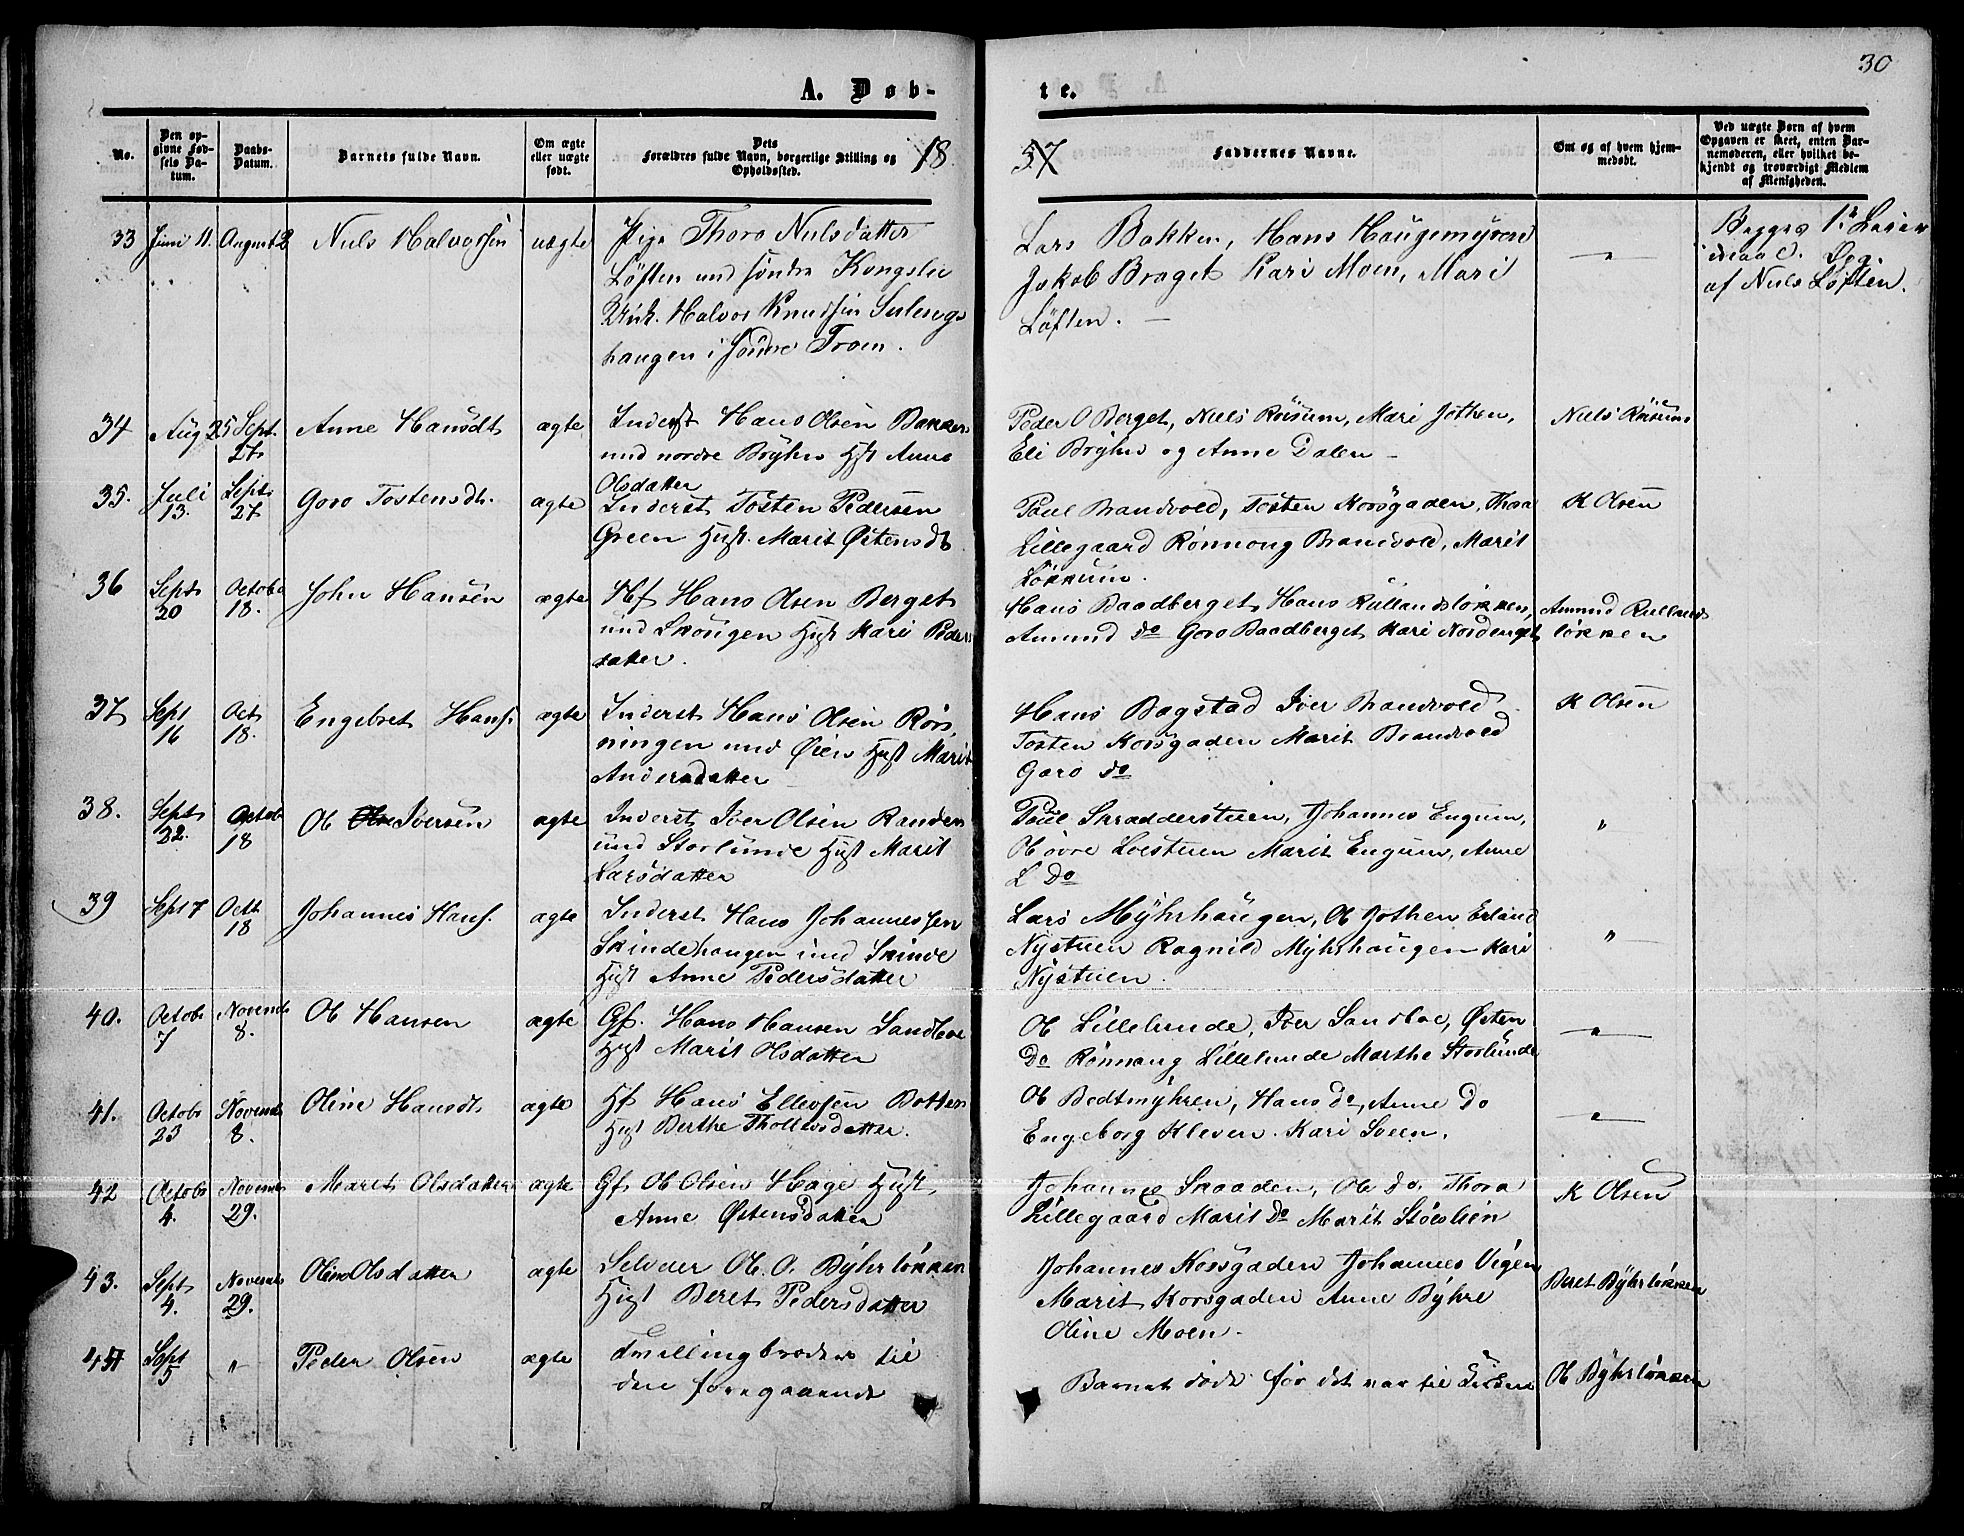 30
A. Døb-
te.
No.
Den op-
givne Fød-
sels Da-
tum.
Daabs-
Datum.
Barnets fulde Navn.
Om ægte
eller uægte
født.
Dets
Forældres fulde Navn, borgerlige Stilling og
Opholdssted.
18
57
Faddernes Navne.
Om og af hvem hjem-
medøbt.
Ved uægte Børn af hvem
Opgaven er skeet, enten Bar-
nemoderen, eller hvilket be-
kjendt og troværdigt Medlem
af Menigheden.
33 Juni 11. August 2 Niels Halvorsen uægte Pige Thoro Nielsdatter
Løften und søndre Kongslie
Halvor Knudsen
haugen i søndre Froen.
Lars Bakken, Hans Haugemyren
Jakob Braget Kari Moen, Mari
Løften. —
Begges 1e Leier
maal. Opg.
af Niels Løften.
34 Aug 25 Sept 27 Anne Hansdt ægte Inderst Hans Olsen Bakken
und nordre Bryhn Hst Anne
Olsdatter
Peder O Berget, Niels Röisum, Mari Jothen,
Eli Bryhn og Anne Dalen —
Niels Röisum
35. Juli 13. Sept 27 Goro Tostensdt. ægte Inderst Tosten Pedersen
Green Hust. Marit Østensdt
Paul Brandvold, Tosten Korsgaden, Thora
Lillegaard Rønnoug Brandvold, Marit
Løkkum.
K Olsen
36 Sept 20 Octobr 18. John Hansen ægte Hf Hans Olsen Berget
und Skougen Hust Kari Peders
datter.
Hans Baadberget Hans Rullandsløkken,
Amund do Goro Baadberget Kari Nordenget
Amund Rullands
løkken
37 Sept 16 Oct 18. Engebret Hans. ægte Inderst Hans Olsen Rørs
ningen und Øien Hust Marit
Andersdatter
Hans Bagstad Iver Brandvold
Tosten Korsgaden Marit Brandvold
Goro do
K Olsen
38. Sept 22. Octob 18 Ol Iversen ægte Inderst Iver Olsen Randen
und Storlunde Hust Marit
Larsdatter
Paul Skradderstuen, Johannes Engum,
Ol øvre Loestuen Marit Engum, Anne
L Do
"
39 Sept 7 Octr 18 Johannes Hans. ægte Inderst Hans Johannessen
Skindehaugen und Skinde
Hust Anne Pedersdatter
Lars Myhrhaugen, Ol Jothen Erland
Nystuen Ragnild Myhrhaugen Kari
Nystuen
"
40. Octobr 7 Novemb 8. Ol Hansen ægte Gf. Hans Hansen Sandboe
Hust Marit Olsdatter
Ol Lillelunde, Iver Sandboe, Østen
Do Rønnaug Lillelunde Marthe Storlunde
"
41. Octobr 23 Novemb 8. Oline Hansdt ægte Hf Hans Ellevsen Botten
Hust Berthe Thollevsdatter.
Ol Bodtmyhren, Hans do, Anne Do
Engeborg Kleven. Kari Sveen.
"
42 Octobr 4. Novemb 29. Marit Olsdatter ægte Gf Ol Olsen Hage Hust
Anne Østensdatter
Johannes Skaaden, Ol do. Thora
Lillegaard Marit Do Marit Støeslien
K Olsen
43. Sept 4. Novemb 29. Oline Olsdatter ægte Selveier Ol. O. Byhrløkken
Hust Beret Pedersdatter
Johannes Korsgaden Johannes Vigen
Marit Korsgaden Anne Byhre
Oline Moen.
Beret Byhrløkken
44 Sept 5 " Peder Olsen ægte Tvillingbroder til
den foregaaende
Barnet døde før det var til Kirken
Ol Byhrløkken